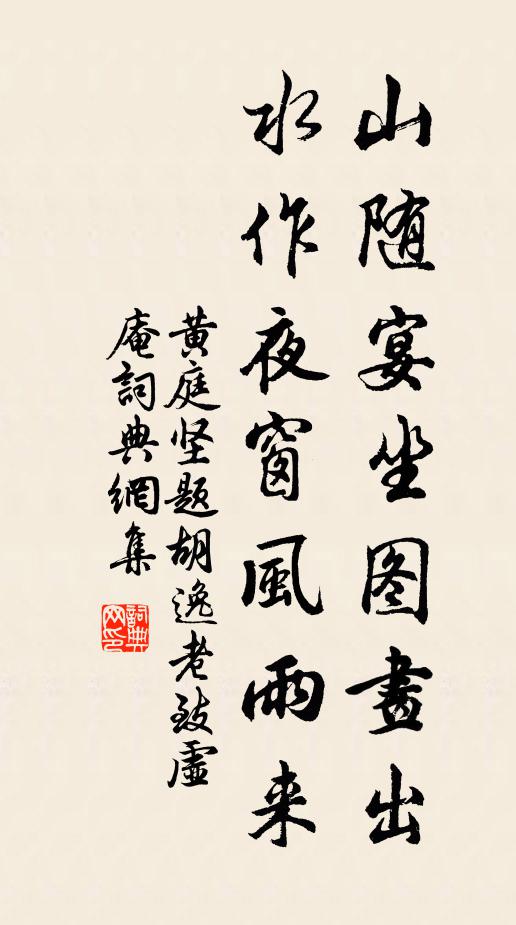 山随宴坐图畫出
水作夜窗風雨来
黄庭坚题胡逸老致虚
庵詞典網集
詞典网印